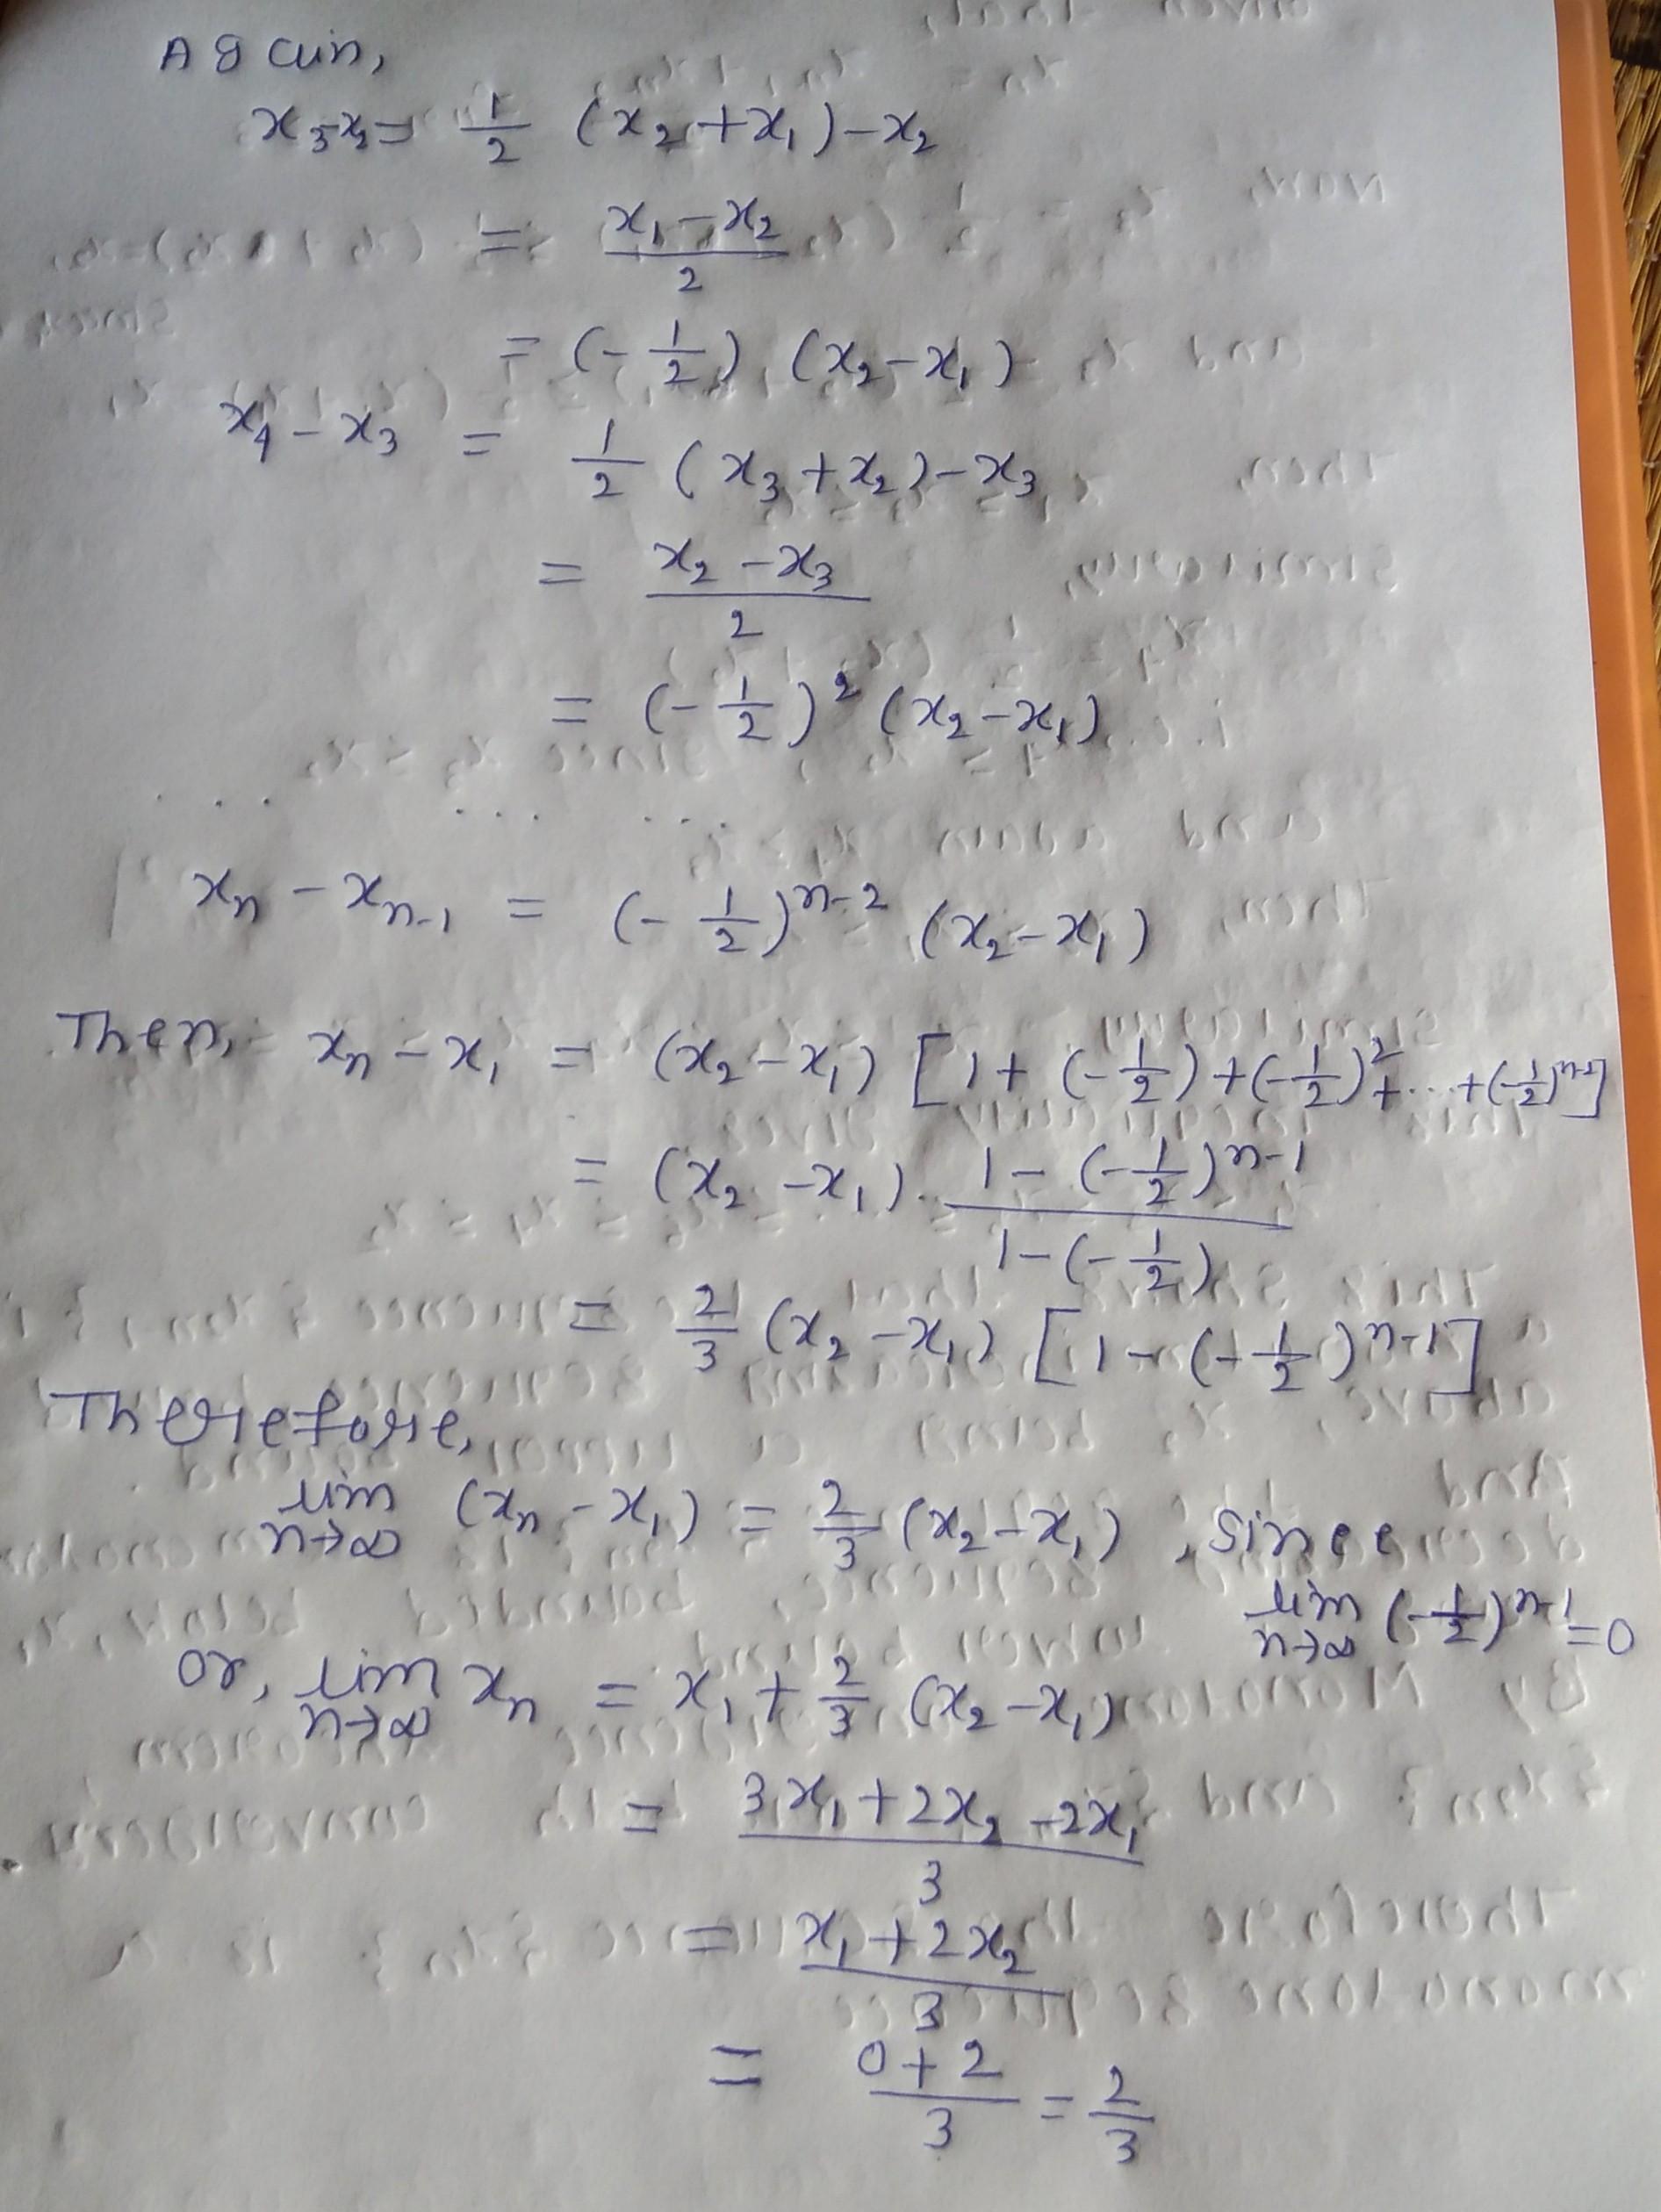 Again,
x₃-x₂= 1/2 (x₂+x₁)-x₂
= (x₁-x₂)/2
= (-1/2) (x₂-x₁)
x₄-x₃ = 1/2 (x₃+x₂)-x₃
= (x₂-x₃)/2
= (-1/2)² (x₂-x₁)
... ... ...
xₙ - xₙ₋₁ = (-1/2)ⁿ⁻² (x₂-x₁)
Then, xₙ-x₁ = (x₂-x₁) [1+(-1/2)+(-1/2)²+...+(-1/2)ⁿ⁻²]
= (x₂-x₁). (1-(-1/2)ⁿ⁻¹)/(1-(-1/2))
= 2/3 (x₂-x₁) [1-(-1/2)ⁿ⁻¹]
Therefore,
lim n→∞ (xₙ-x₁) = 2/3 (x₂-x₁), since
lim n→∞ (-1/2)ⁿ⁻¹=0
or, lim n→∞ xₙ = x₁+2/3 (x₂-x₁)
= (3x₁+2x₂-2x₁)/3
= (x₁+2x₂)/3
= (0+2)/3 = 2/3